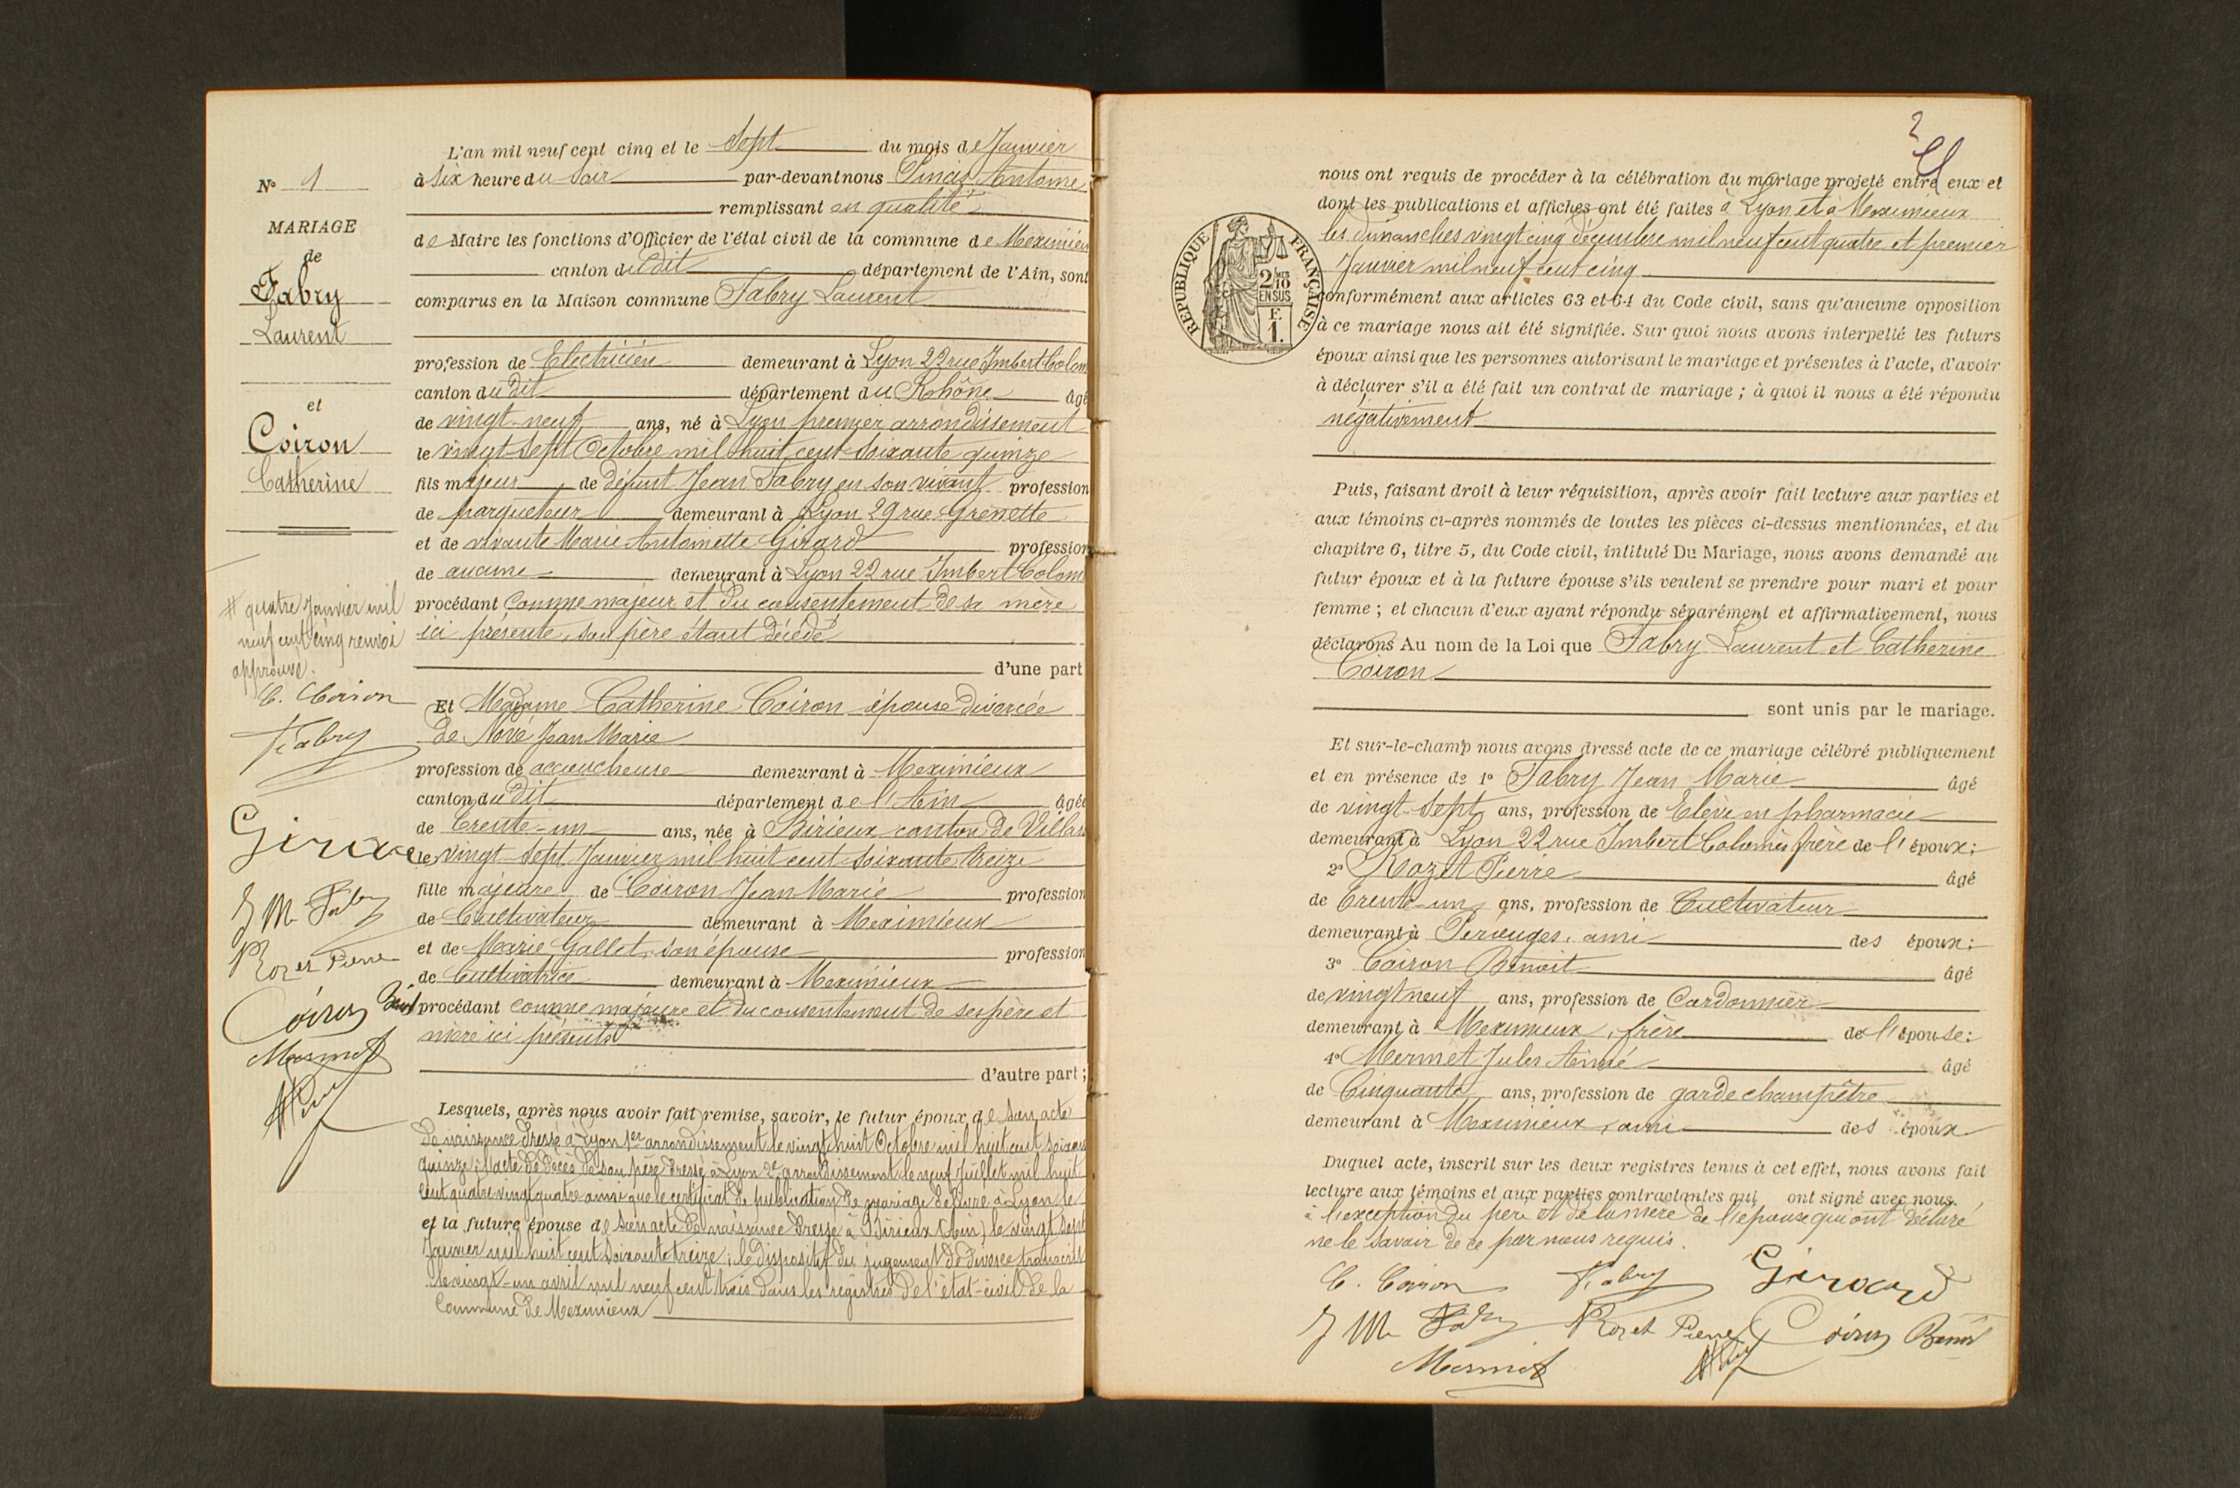 N° 1
MARIAGE
de
Fabry
Laurent
et
Coiron
Catherine
# quatre Janvier mil
neuf cent cinq renvoi
approuvé.
C. Coiron
Fabry
Girard
J M Fabry
Rozet Pierre
Coiron Benoit
Mermet
L'an mil neuf cent cinq et le Sept du mois de Janvier
à six heure du soir par-devant nous Antoine
remplissant en qualité
de Maire les fonctions d'Officier de l'état civil de la commune de Meximieux
canton du dit département de l'Ain, sont
comparus en la Maison commune Fabry Laurent
profession de Electricien demeurant à Lyon 22 rue Imbert Colom
canton du dit département du Rohône âgé
de vingt-neuf ans, né à Lyon premier arrondissement
le vingt-sept Octobre mil huit cent soixante quinze
fils majeur de défunt Jean Fabry en son vivant profession
de parqueteur demeurant à Lyon 29 rue Grenette
et de vivante Marie Antoinette Girard profession
de aucune demeurant à Lyon 22 rue Imbert Colom
procédant comme majeur et du consentement de sa mère
ici présente, son père étant décédé
d'une part
Et Madame Catherine Coiron épouse divorcée
de Nové Jean Marie
profession de accoucheuse demeurant à Meximieux
canton du dit département de l'Ain âgée
de trente-un ans, née à Birieux canton de Villars
le vingt-sept Janvier mil huit cent soixante treize
fille majeure de Coiron Jean Marie profession
de Cultivateur demeurant à Meximieux
et de Marie Gallet son épouse profession
de Cultivatrice demeurant à Meximieux
procédant comme majeure et du consentement de ses père et
mère ici présents
d'autre part ;
Lesquels, après nous avoir fait remise, savoir, le futur époux de son acte
de naissance dressé à Lyon 1er arrondissement le vingt huit Octobre mil huit cent soixante
quinze ; l'acte de décès de son père dressé à Lyon 2e arrondissement le neuf Juillet mil huit
cent quatre vingt quatre ainsi que le certificat de publication de mariage délivré à Lyon le #
et la future épouse de son acte de naissance dressé à Birieux (Ain) le vingt sept
Janvier mil huit cent soixante treize ; le dispositif du jugement de divorce transcrit
le vingt-un avril mil neuf cent trois dans les registres de l'état-civil de la
Commune de Meximieux
2
nous ont requis de procéder à la célébration du mariage projeté entre eux et
dont les publications et affiches ont été faites à Lyon et à Meximieux
les dimanches vingt cinq décembre mil neuf cent quatre et premier
Janvier mil neuf cent cinq
RÉPUBLIQUE FRANÇAISE
2/10 EN SUS
F. 1.
conformément aux articles 63 et 64 du Code civil, sans qu'aucune opposition
à ce mariage nous ait été signifiée. Sur quoi nous avons interpellé les futurs
époux ainsi que les personnes autorisant le mariage et présentes à l'acte, d'avoir
à déclarer s'il a été fait un contrat de mariage ; à quoi il nous a été répondu
négativement
Puis, faisant droit à leur réquisition, après avoir fait lecture aux parties et
aux témoins ci-après nommés de toutes les pièces ci-dessus mentionnées, et du
chapitre 6, titre 5, du Code civil, intitulé Du Mariage, nous avons demandé au
futur époux et à la future épouse s'ils veulent se prendre pour mari et pour
femme ; et chacun d'eux ayant répondu séparément et affirmativement, nous
déclarons Au nom de la Loi que Fabry Laurent et Catherine
Coiron
sont unis par le mariage.
Et sur-le-champ nous avons dressé acte de ce mariage célébré publiquement
et en présence de 1° Fabry Jean Marie âgé
de vingt-sept ans, profession de Elève en pharmacie
demeurant à Lyon 22 rue Imbert Colomès frère de l'époux ;
2° Rozet Pierre âgé
de trente-un ans, profession de Cultivateur
demeurant à Pérouges, ami des époux ;
3° Coiron Benoit âgé
de vingt neuf ans, profession de Cordonnier
demeurant à Meximieux, frère de l'épouse ;
4° Mermet Jules Aimé âgé
de Cinquante ans, profession de garde champêtre
demeurant à Meximieux, ami des époux
Duquel acte, inscrit sur les deux registres tenus à cet effet, nous avons fait
lecture aux témoins et aux parties contractantes qui ont signé avec nous.
à l'exception du père et de la mère de l'épouse qui ont déclaré
ne le savoir de ce par nous requis.
C. Coiron Fabry Girard
J M Fabry Rozet Pierre Coiron Benoit
Mermet